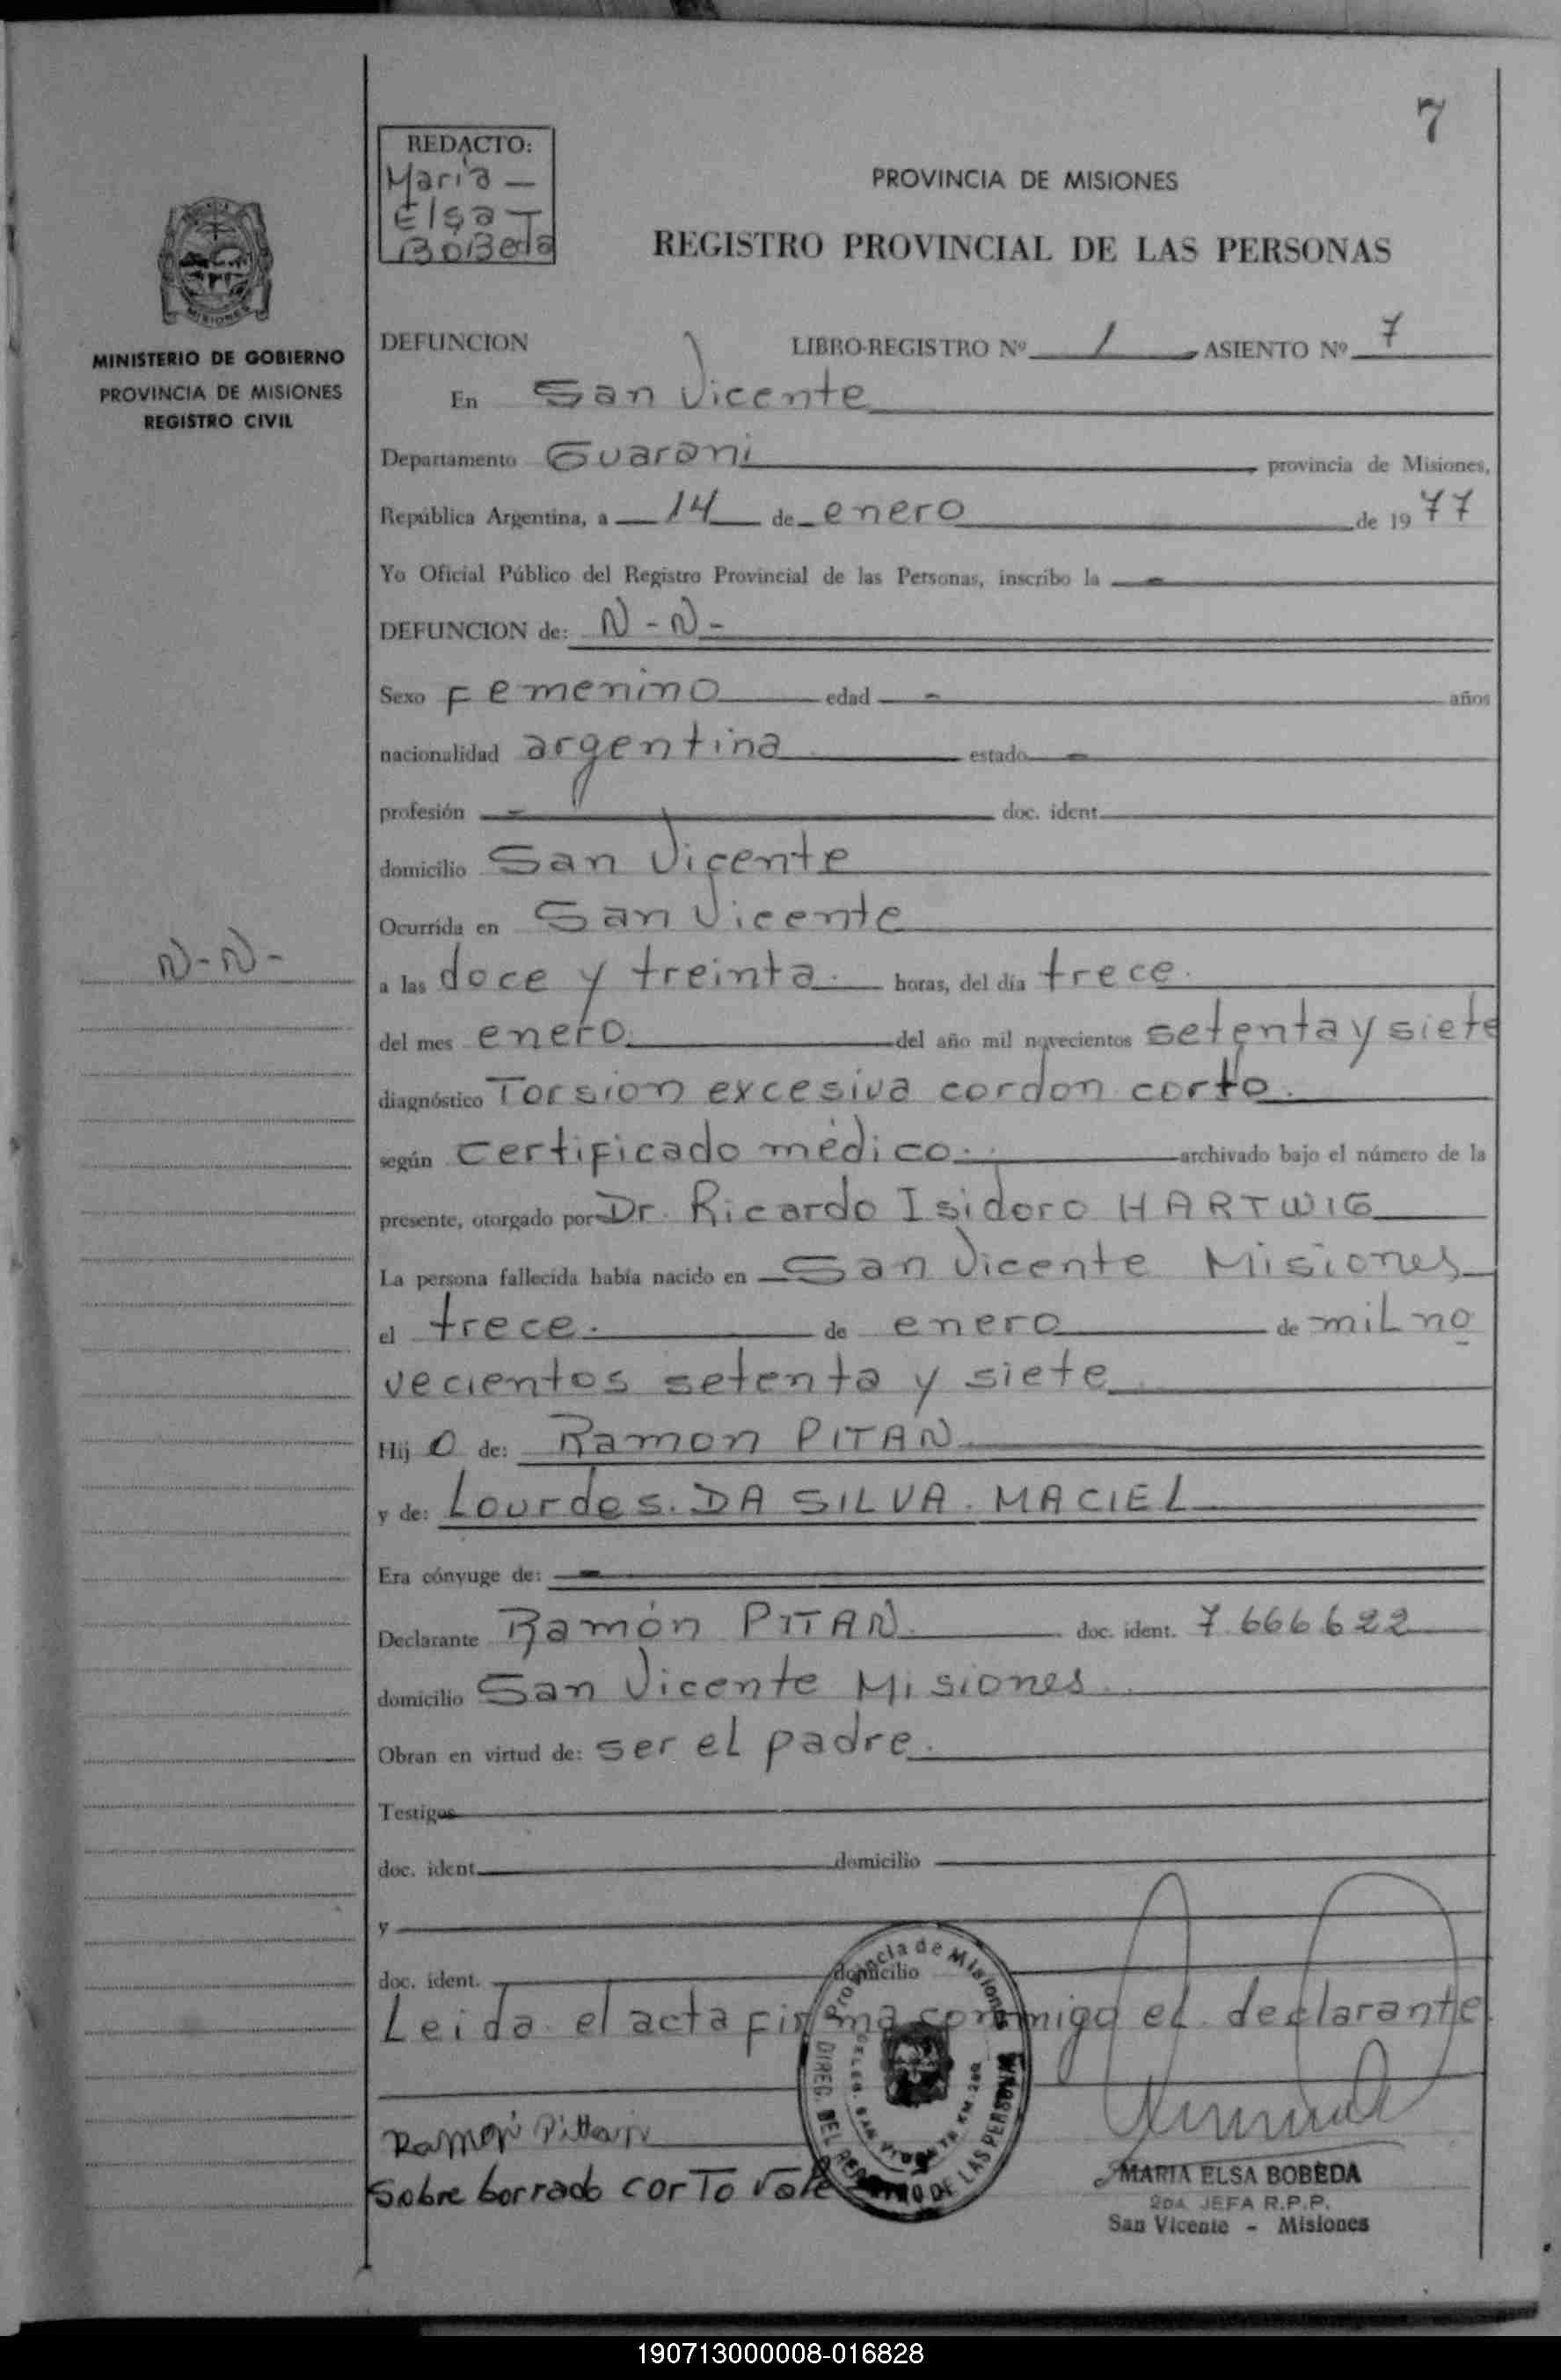 7
REDACTO:
Maria -
Elsa -
BoBeda
PROVINCIA DE MISIONES
REGISTRO PROVINCIAL DE LAS PERSONAS
MISIONES
MINISTERIO DE GOBIERNO
PROVINCIA DE MISIONES
REGISTRO CIVIL
DEFUNCION LIBRO-REGISTRO Nº 1 ASIENTO Nº 7
En San Vicente
Departamento Guarani provincia de Misiones,
República Argentina, a 14 de enero de 1977
Yo Oficial Público del Registro Provincial de las Personas, inscribo la -
DEFUNCION de: N-N-
Sexo Femenino edad - años
nacionalidad argentina estado -
profesión - doc. ident.
domicilio San Vicente
Ocurrida en San Vicente
N-N-
a las doce y treinta. horas, del día trece.
del mes enero. del año mil novecientos setenta y siete
diagnóstico Torsion excesiva cordon corto.
según certificado médico. archivado bajo el número de la
presente, otorgado por Dr. Ricardo Isidoro HARTWIG
La persona fallecida había nacido en San Vicente Misiones
el trece. de enero de mil no
vecientos setenta y siete
Hij o de: Ramon PITAN
y de: Lourdes. DA SILVA. MACIEL
Era cónyuge de: -
Declarante Ramón PITAN. doc. ident. 7.666.622
domicilio San Vicente Misiones.
Obran en virtud de: ser el padre.
Testigos
doc. ident. domicilio
y
doc. ident. domicilio
Leida el acta firma conmigo el declarante
Provincia de Misiones
DIREC. DEL REGISTRO DE LAS PERSONAS
DELEG. SAN VICENTE KM. 260
Ramón Pittan
Sobre borrado corto vale
MARIA ELSA BOBEDA
2DA JEFA R.P.P.
San Vicente - Misiones
190713000008-016828